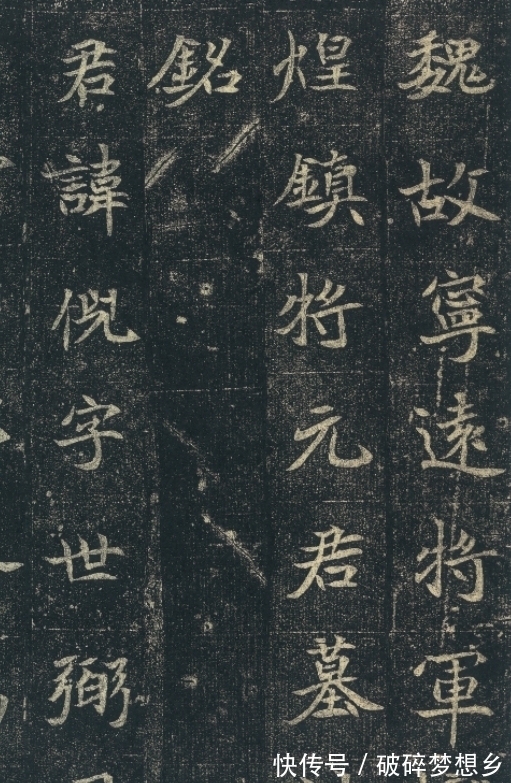 魏故寧遠將軍
煌鎮將元君墓
銘
君諱倪字世弼
快传号 / 破碎梦想乡